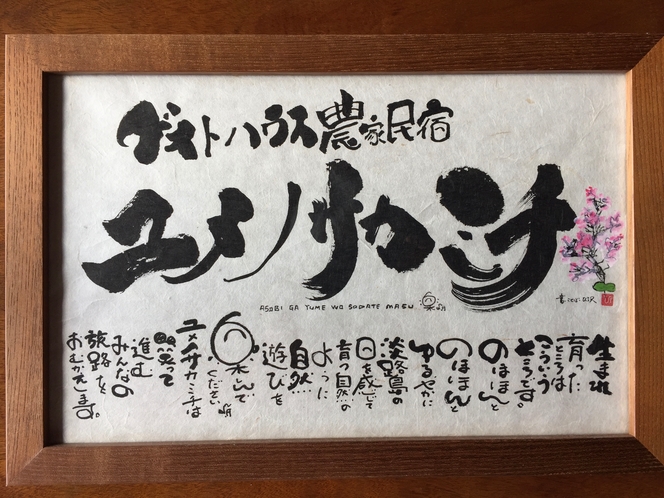 ゲストハウス農家民宿
ユメノサカミチ
ASOBI GA YUME WO SODATE MASU
生まれ
育った
ところは
こういう
ところです。
のほほんと
のほほんと
ゆるやかに
淡路島の
日を感じて
育つ自然の
ような
自然
遊びを
楽しんで
ください
ユメサカミチは
笑って
進む
みんなの
旅路を
おむかえします。